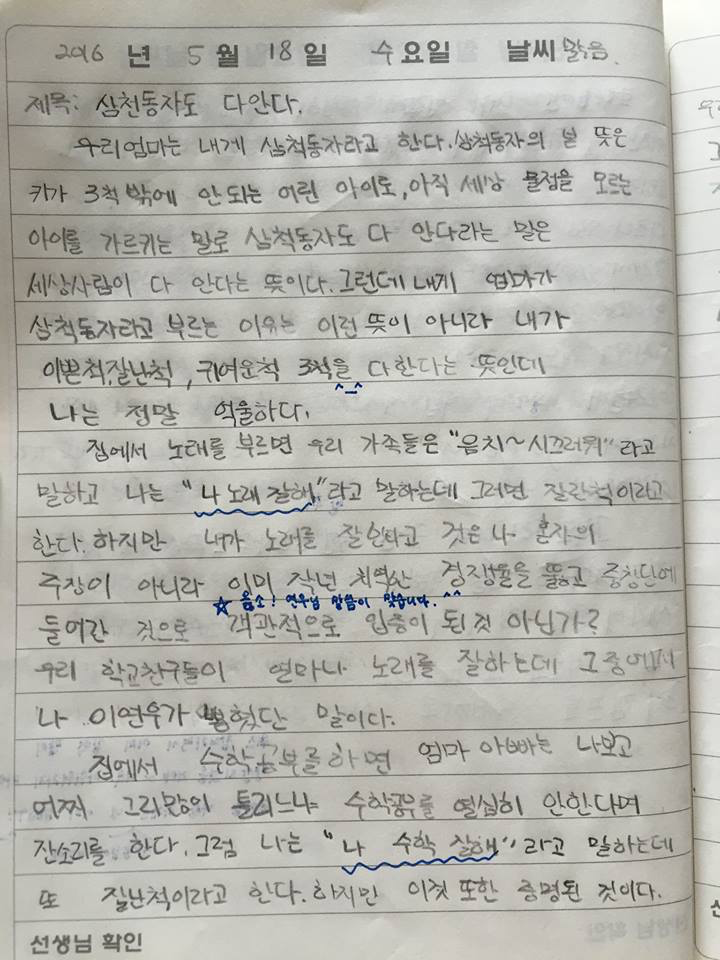 2016 년 5 월 18 일 수요일 날씨 맑음.
제목: 삼천동자도 다안다.
우리엄마는 내게 삼척동자라고 한다. 삼척동자의 본 뜻은
키가 3척 밖에 안되는 어린 아이로, 아직 세상 물정을 모르는
아이를 가르키는 말로 삼척동자도 다 안다라는 말은
세상사람이 다 안다는 뜻이다. 그런데 내게 엄마가
삼척동자라고 부르는 이유는 이런 뜻이 아니라 내가
이쁜척, 잘난척, 귀여운척 3척을 다한다는 뜻인데
^_^
나는 정말 억울하다.
집에서 노래를 부르면 우리 가족들은 "음치~시끄러워" 라고
말하고 나는 "나 노래 잘해."라고 말하는데 그러면 잘난척이라고
한다. 하지만 내가 노래를 잘한다고 것은 나 혼자의
주장이 아니라 이미 작년 치열한 경쟁률을 뚫고 중창단에
☆ 옳소! 연우님 말씀이 맞습니다. ^^
들어간 것으로 객관적으로 입증이 된 것 아닌가?
우리 학교친구들이 얼마나 노래를 잘하는데 그 중에서
나 이연우가 뽑혔단 말이다.
집에서 수학공부를하면 엄마 아빠는 나보고
어찌 그리많이 틀리느냐 수학공부를 열심히 안한다며
잔소리를 한다. 그럼 나는 "나 수학 잘해" 라고 말하는데
또 잘난척이라고 한다. 하지만 이것 또한 증명된 것이다.
선생님 확인